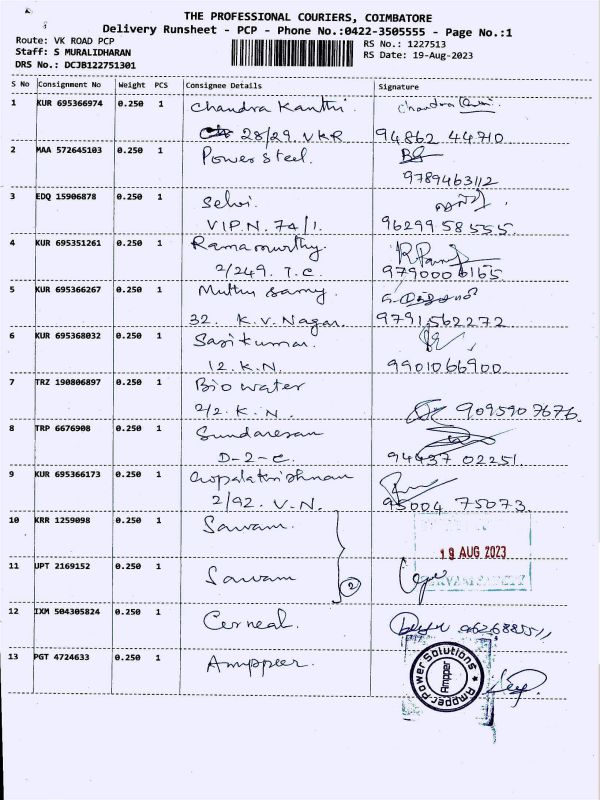 THE PROFESSIONAL COURIERS, COIMBATORE
Delivery Runsheet - PCP - Phone No.:0422-3505555 - Page No.:1
Route: VK ROAD PCP
RS No.: 1227513
Staff: S MURALIDHARAN
RS Date: 19-Aug-2023
DRS No.: DCJB122751301
S No Consignment No Weight PCS Consignee Details Signature
1 KUR 695366974 0.250 1 Chandra Kanthi. Chandra
28/29 VKR 94862 44710
2 MAA 572645103 0.250 1 Power Steel.
9789463112
3 EDQ 15906878 0.250 1 Selvi.
V.I.P.N. 74/1. 96299 58555
4 KUR 695351261 0.250 1 Ramamourthy.
2/249. T.C 9790006165
5 KUR 695366267 0.250 1 Muthu Samy.
32. K.V. Nagar. 9791562272
6 KUR 695368032 0.250 1 Sasikumar.
12. K.N. 9901066900
7 TRZ 190806897 0.250 1 Bio water
2/2. K.N. 9095907676
8 TRP 6676908 0.250 1 Sundaresan
D-2-C. 94437 02251
9 KUR 695366173 0.250 1 Gopalakrishnan
2/92. V.N. 95004 75073
10 KRR 1259098 0.250 1 Sawam.
19 AUG 2023
11 UPT 2169152 0.250 1 Sawam
2
12 IXM 504305824 0.250 1 Cerneal.
13 PGT 4724633 0.250 1 Amppeer.
Ampper Power Solutions
Ampper